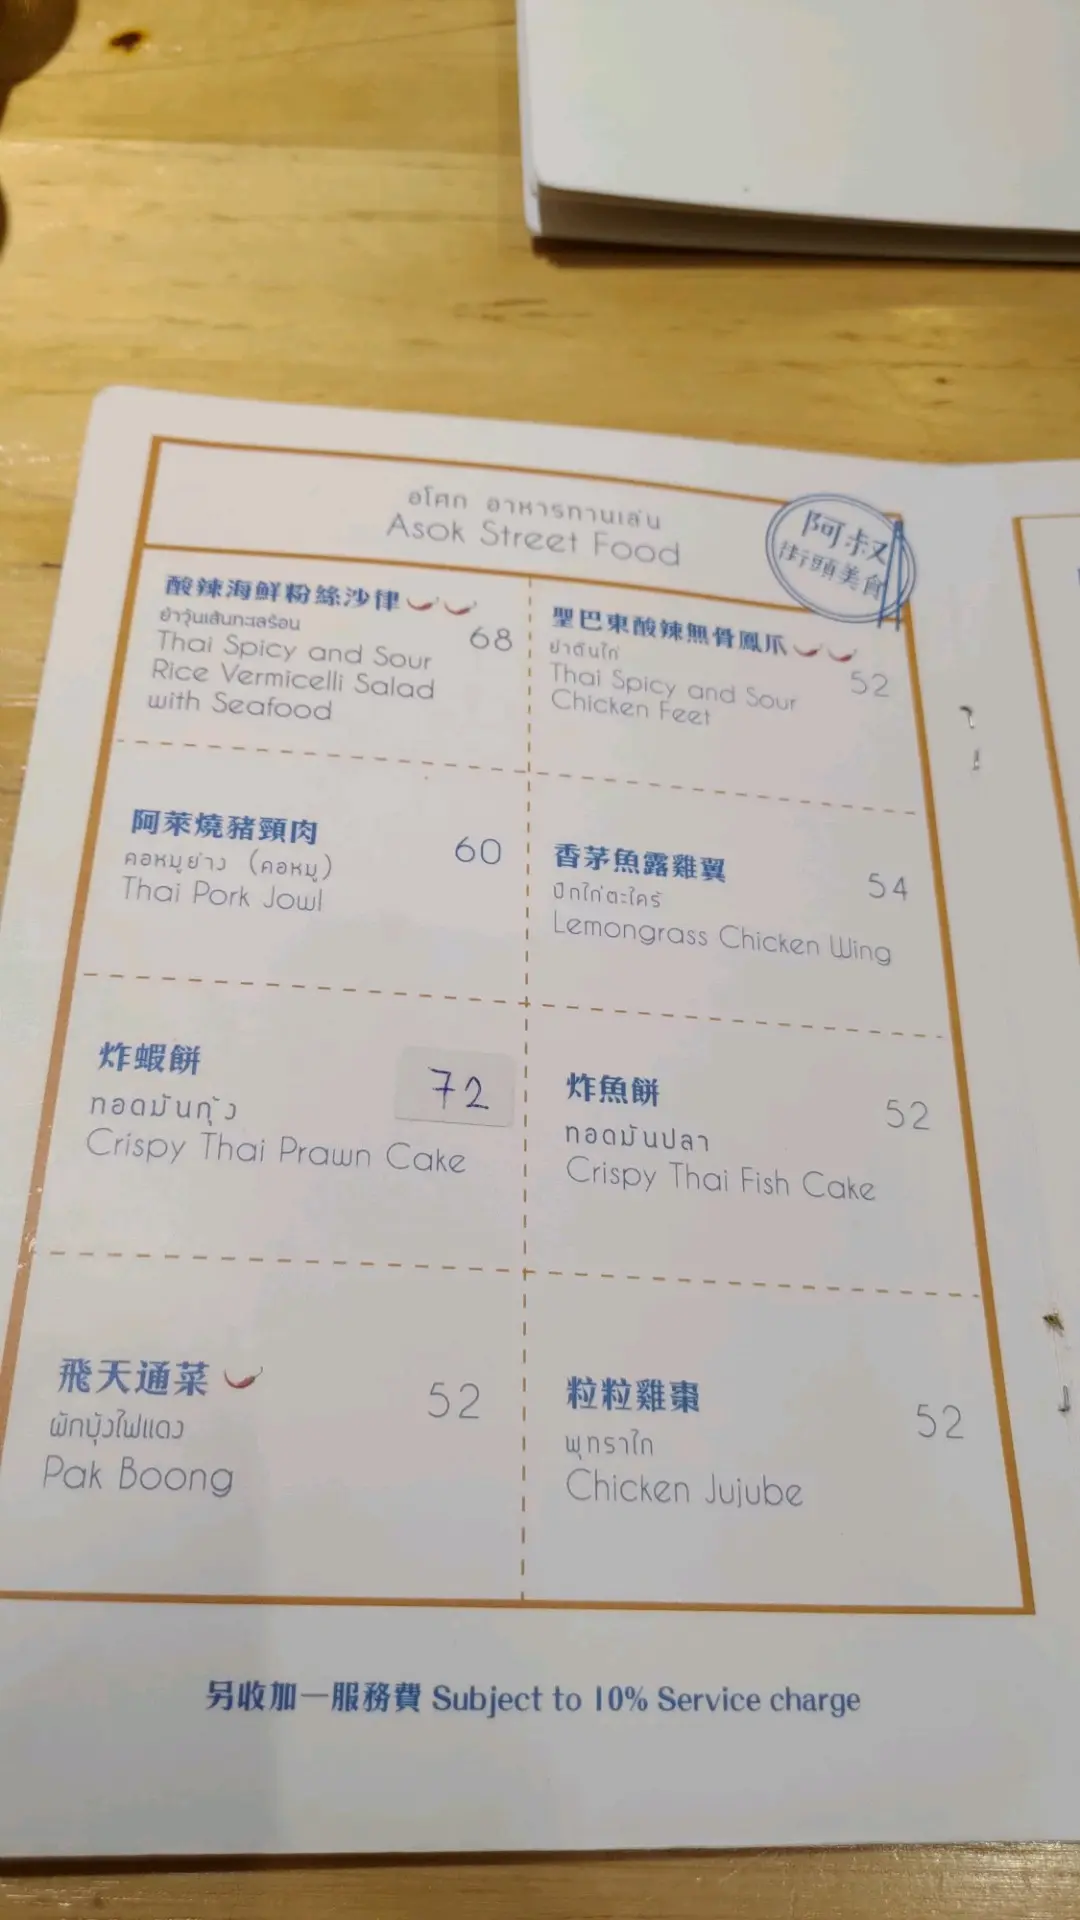 อโศก อาหารทานเล่น
Asok Street Food
阿叔
街頭美食
酸辣海鮮粉絲沙律
ยำวุ้นเส้นทะเลร้อน
68
Thai Spicy and Sour
Rice Vermicelli Salad
with Seafood
聖巴東酸辣無骨鳳爪
ยำตีนไก่
52
Thai Spicy and Sour
Chicken Feet
阿萊燒豬頸肉
60
คอหมูย่าง (คอหมู)
Thai Pork Jowl
香茅魚露雞翼
54
ปีกไก่ตะไคร้
Lemongrass Chicken Wing
炸蝦餅
72
ทอดมันกุ้ง
Crispy Thai Prawn Cake
炸魚餅
52
ทอดมันปลา
Crispy Thai Fish Cake
飛天通菜
52
ผักบุ้งไฟแดง
Pak Boong
粒粒雞棗
52
พุทราไก่
Chicken Jujube
另收加一服務費 Subject to 10% Service charge